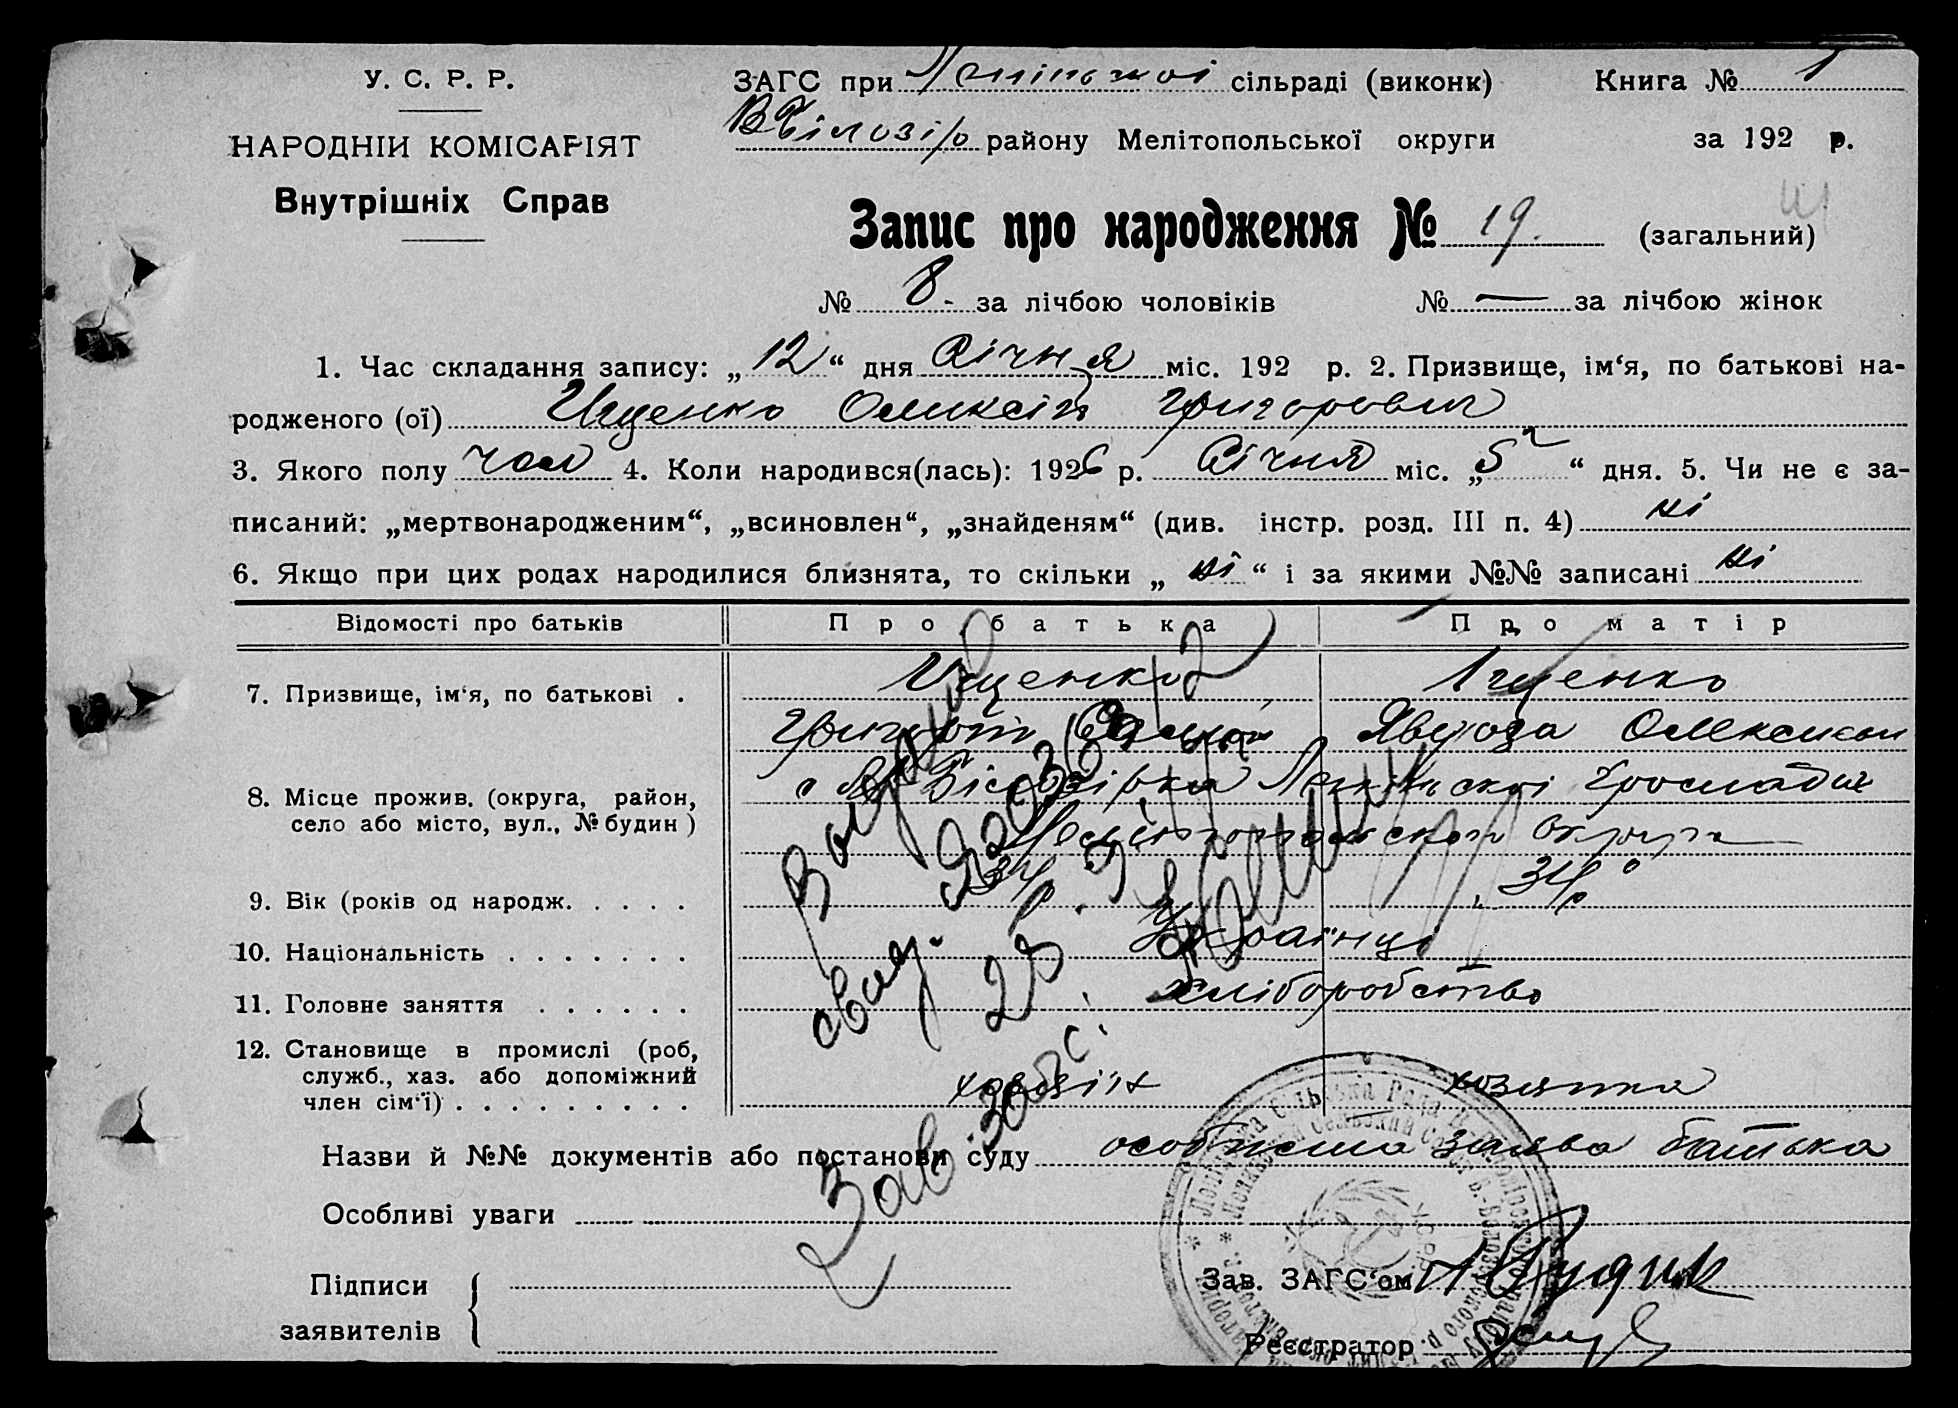 У. С. Р. Р.
НАРОДНІЙ КОМІСАРІЯТ
Внутрішніх Справ
ЗАГС при сільраді (виконк) Книга № 1
В Білозір району Мелітопольської округи за 192 р.
Запис про народження № 19. (загальний)
№ 8 - за лічбою чоловіків № — за лічбою жінок
1. Час складання запису: „ 12 “ дня Січня міс. 192 р. 2. Призвище, ім‘я, по батькові на-
родженого (ої) Ищенко Оликсій Григорович
3. Якого полу чол 4. Коли народився(лась): 1926 р. Січня міс. „ 5 “ дня. 5. Чи не є за-
писаний: „мертвонародженим“, „всиновлен“, „знайденям“ (див. інстр. розд. III п. 4) ні
6. Якщо при цих родах народилися близнята, то скільки „ ні “ і за якими №№ записані ні
Відомості про батьків Про батька Про матір
7. Призвище, ім‘я, по батькові . Ищенко Іщенко
Григорій Явдоха
8. Місце прожив. (округа, район, с В Білозірка Громади
село або місто, вул., № будин ) Мелітопольскої Округи
9. Вік (років од народж. . . . . 34 34
10. Національність . . . . . . . Українці
11. Головне заняття . . . . . . хліборобство
12. Становище в промислі (роб, хозяін хозяйка
служб., хаз. або допоміжний
член сім‘ї) . . . . . . . . .
Назви й №№ документів або постанови суду особиста заява батька
Особливі уваги
Підписи
заявителів
Зав. ЗАГС‘ом Рудик
Реєстратор